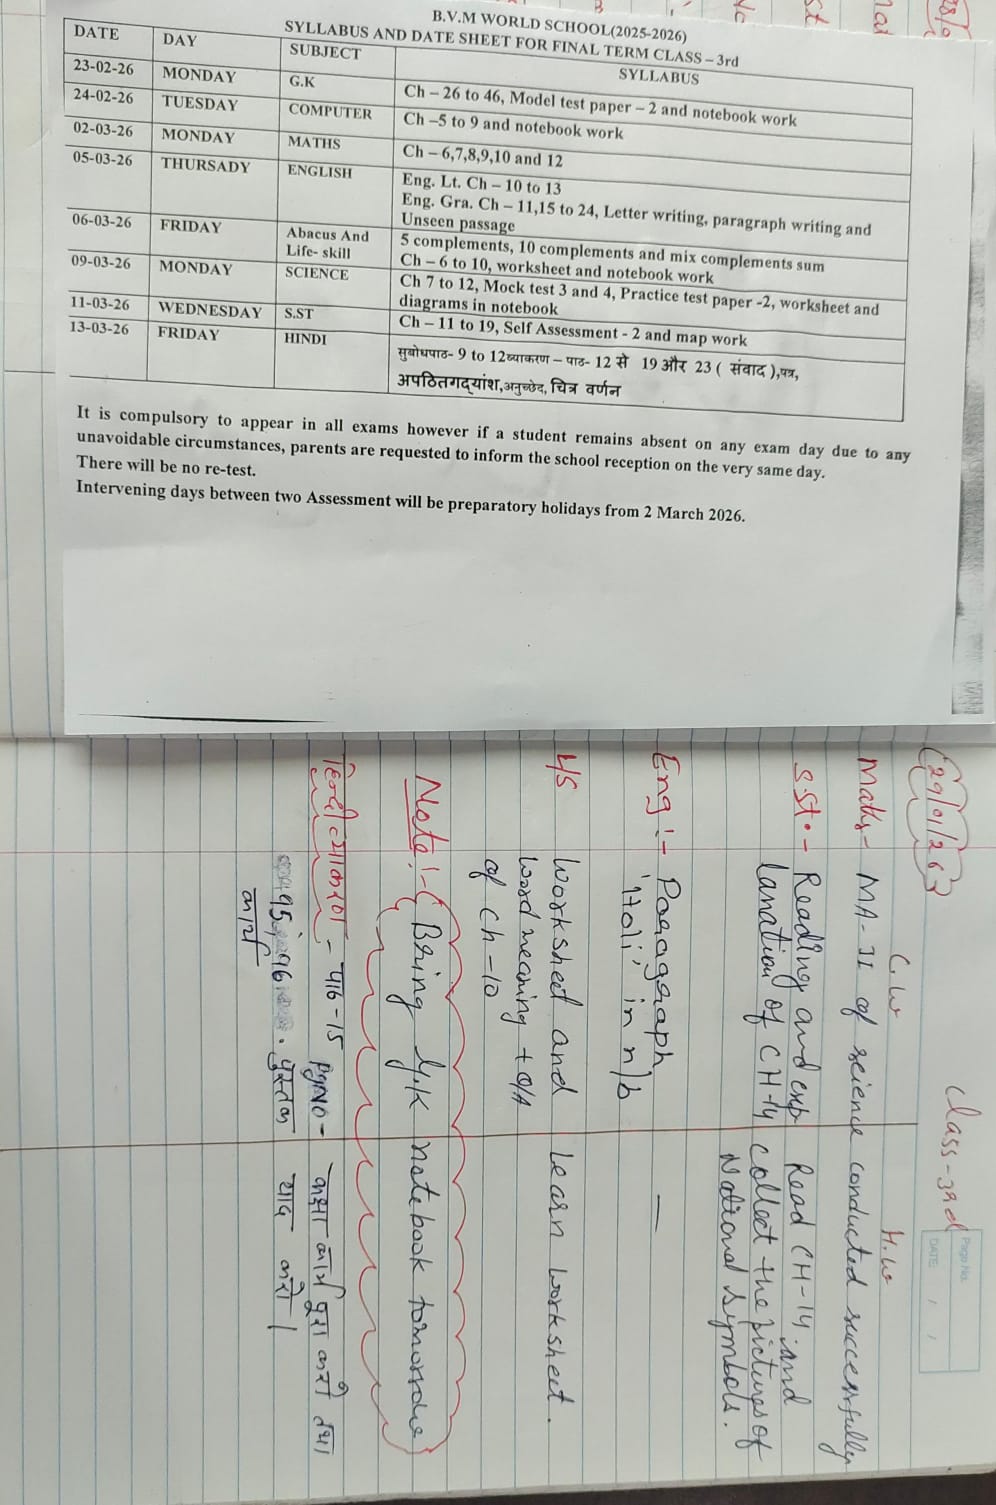 B.V.M WORLD SCHOOL(2025-2026)
SYLLABUS AND DATE SHEET FOR FINAL TERM CLASS – 3rd
DATE DAY SUBJECT SYLLABUS
23-02-26 MONDAY G.K Ch – 26 to 46, Model test paper – 2 and notebook work
24-02-26 TUESDAY COMPUTER Ch –5 to 9 and notebook work
02-03-26 MONDAY MATHS Ch – 6,7,8,9,10 and 12
05-03-26 THURSADY ENGLISH Eng. Lt. Ch – 10 to 13
Eng. Gra. Ch – 11,15 to 24, Letter writing, paragraph writing and
Unseen passage
06-03-26 FRIDAY Abacus And 5 complements, 10 complements and mix complements sum
Life- skill Ch – 6 to 10, worksheet and notebook work
09-03-26 MONDAY SCIENCE Ch 7 to 12, Mock test 3 and 4, Practice test paper -2, worksheet and
diagrams in notebook
11-03-26 WEDNESDAY S.ST Ch – 11 to 19, Self Assessment - 2 and map work
13-03-26 FRIDAY HINDI सुबोधपाठ- 9 to 12व्याकरण – पाठ- 12 से 19 और 23 ( संवाद ),पत्र,
अपठितगद्यांश,अनुच्छेद, चित्र वर्णन
It is compulsory to appear in all exams however if a student remains absent on any exam day due to any
unavoidable circumstances, parents are requested to inform the school reception on the very same day.
There will be no re-test.
Intervening days between two Assessment will be preparatory holidays from 2 March 2026.
Class-3rd
Page No.
DATE: / /
29/01/26
C.W H.W
Maths- MA-II of science conducted successfully
S.St:- Reading and exp Read CH-14 and
lanation of CH-14 collect the pictures of
National Symbols.
Eng:- Paragraph —
'Holi' in n/b
L/S Worksheet and Learn worksheet.
word meaning + Q/A
of Ch-10
Note:- Bring G.K notebook tomorrow
हिन्दी व्याकरण - पाठ-15 PgNo- कक्षा कार्य पूरा करो तथा
95, 96. पुस्तक याद करो।
कार्य